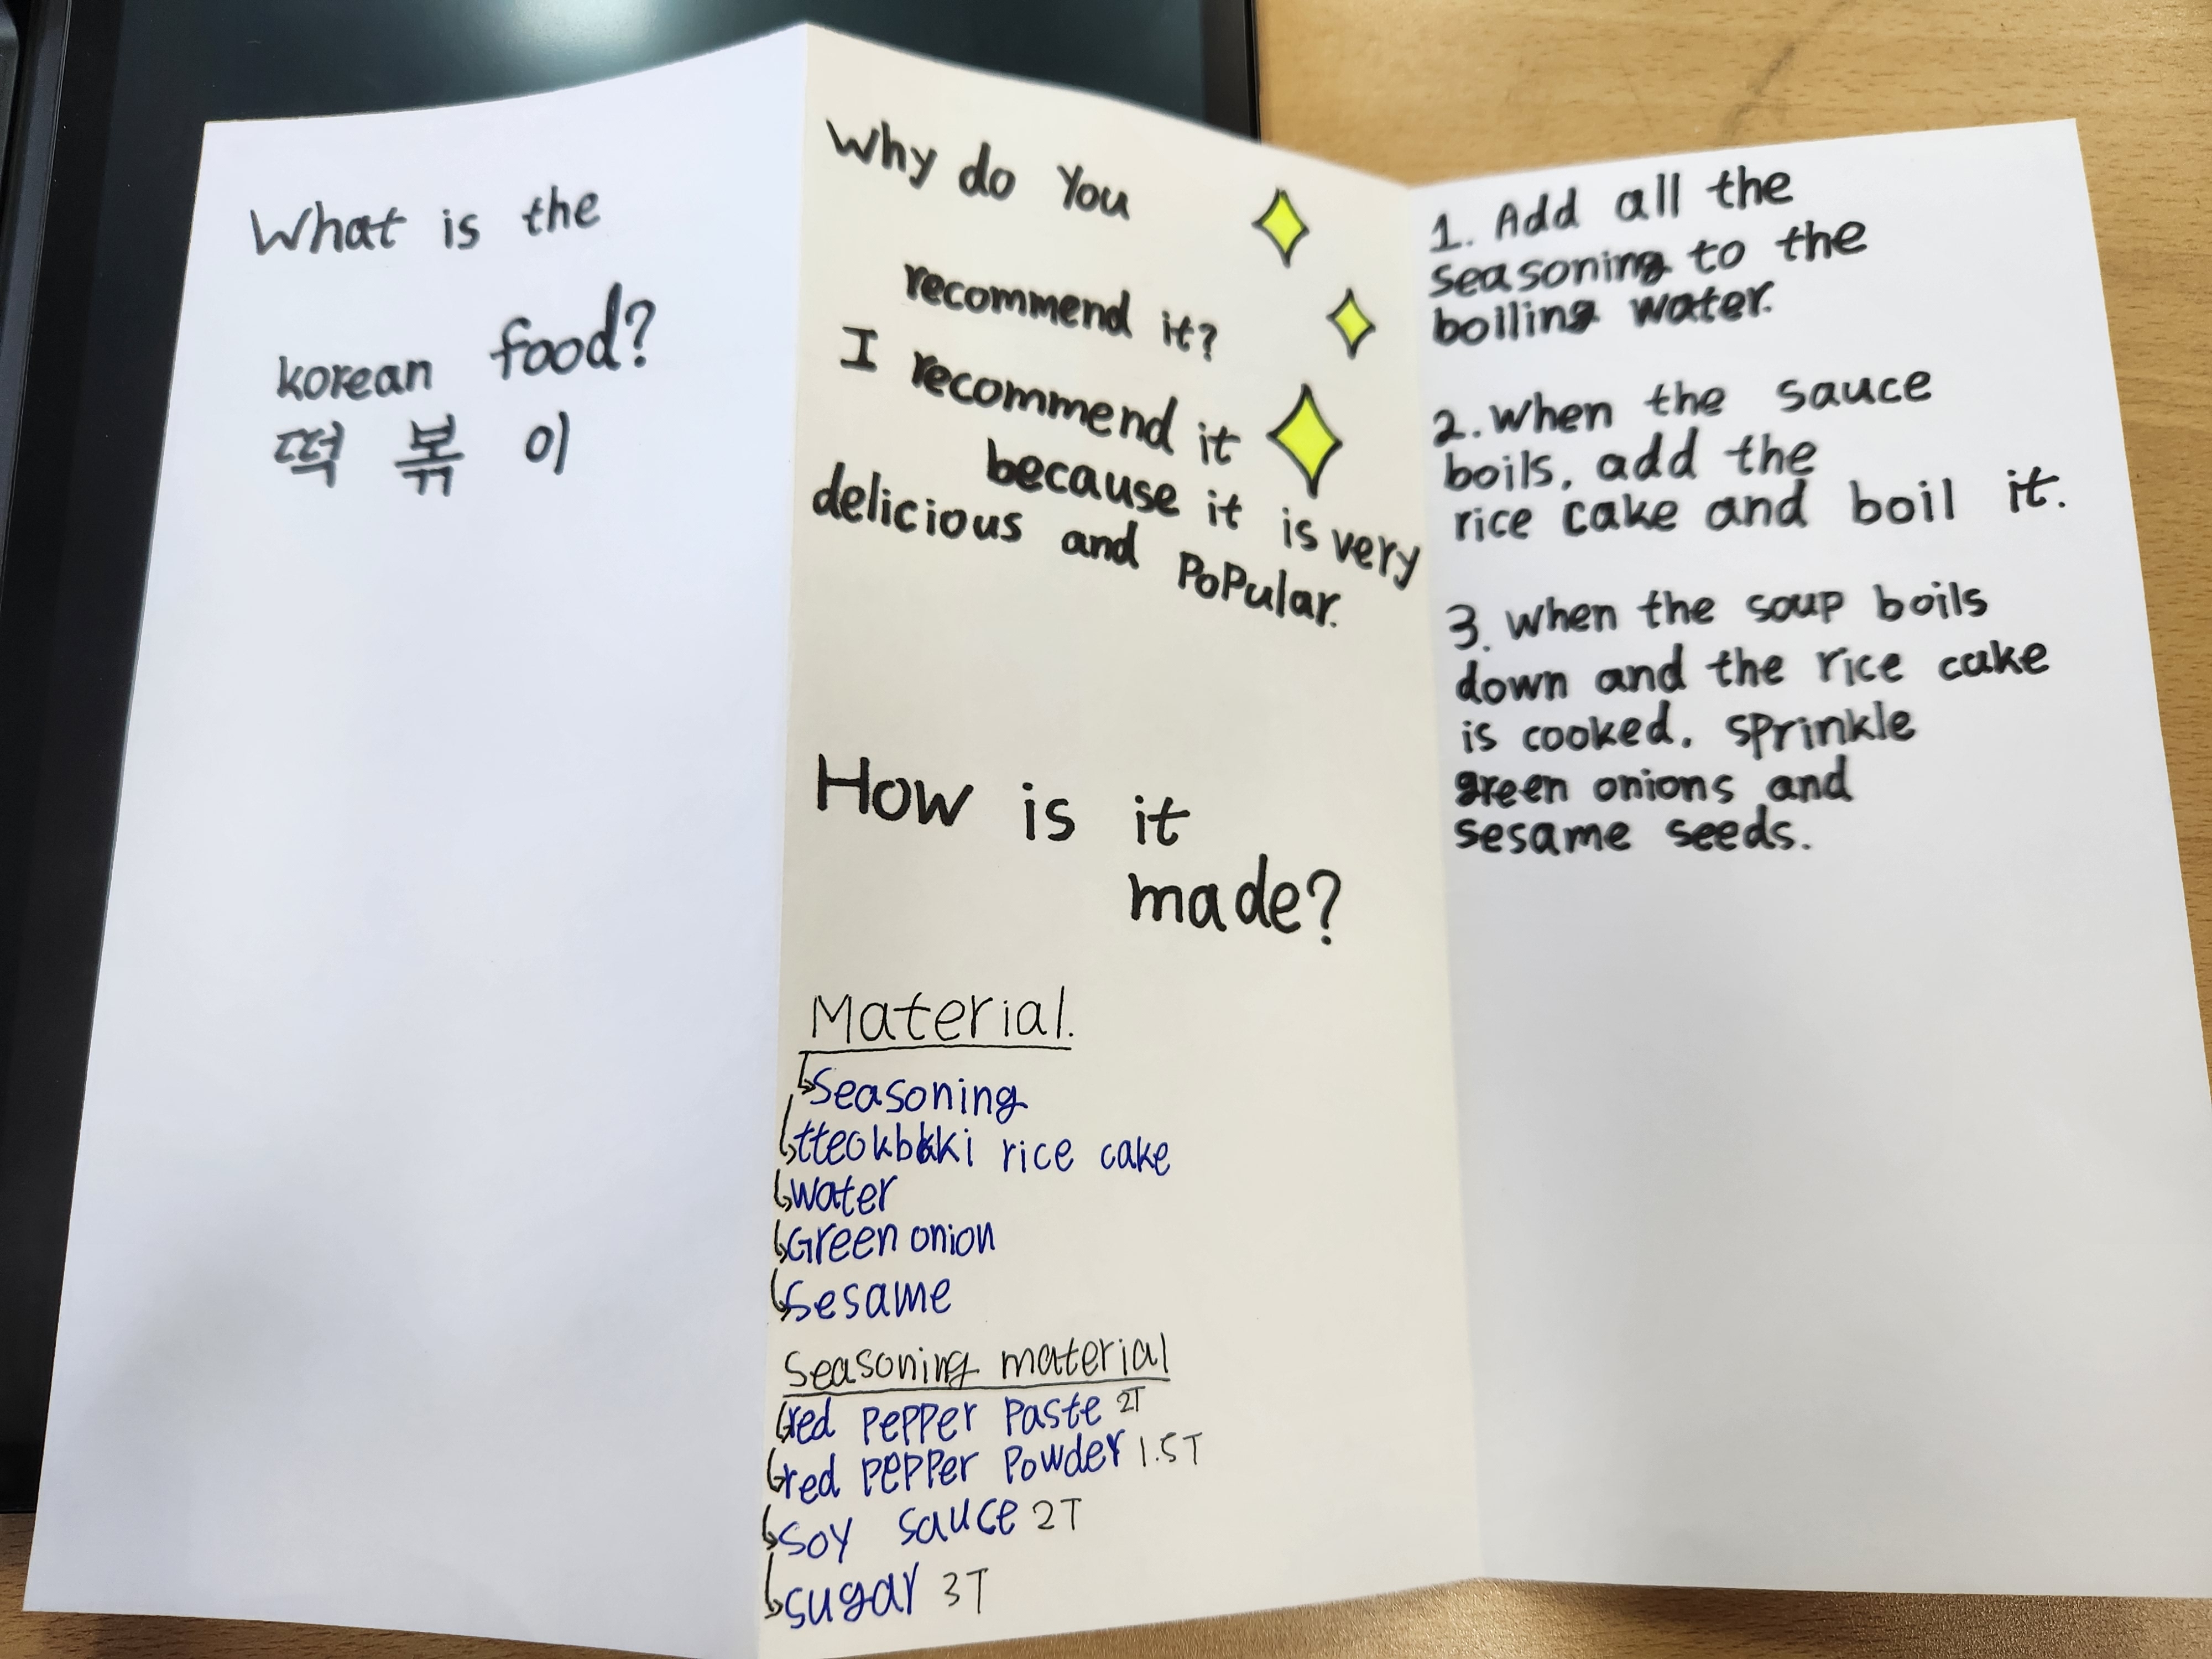 What is the
korean food?
떡 볶 이
Why do You
recommend it?
I recommend it
because it is very
delicious and PoPular.
How is it
made?
Material.
Seasoning
tteokbkki rice cake
water
Green onion
Sesame
Seasoning material
red PePPer Paste 2T
red PEPPer Powder 1.5T
soy sauce 2T
sugar 3T
1. Add all the
seasoning to the
boiling water.
2. When the sauce
boils, add the
rice cake and boil it.
3. When the soup boils
down and the rice cake
is cooked, sprinkle
green onions and
sesame seeds.